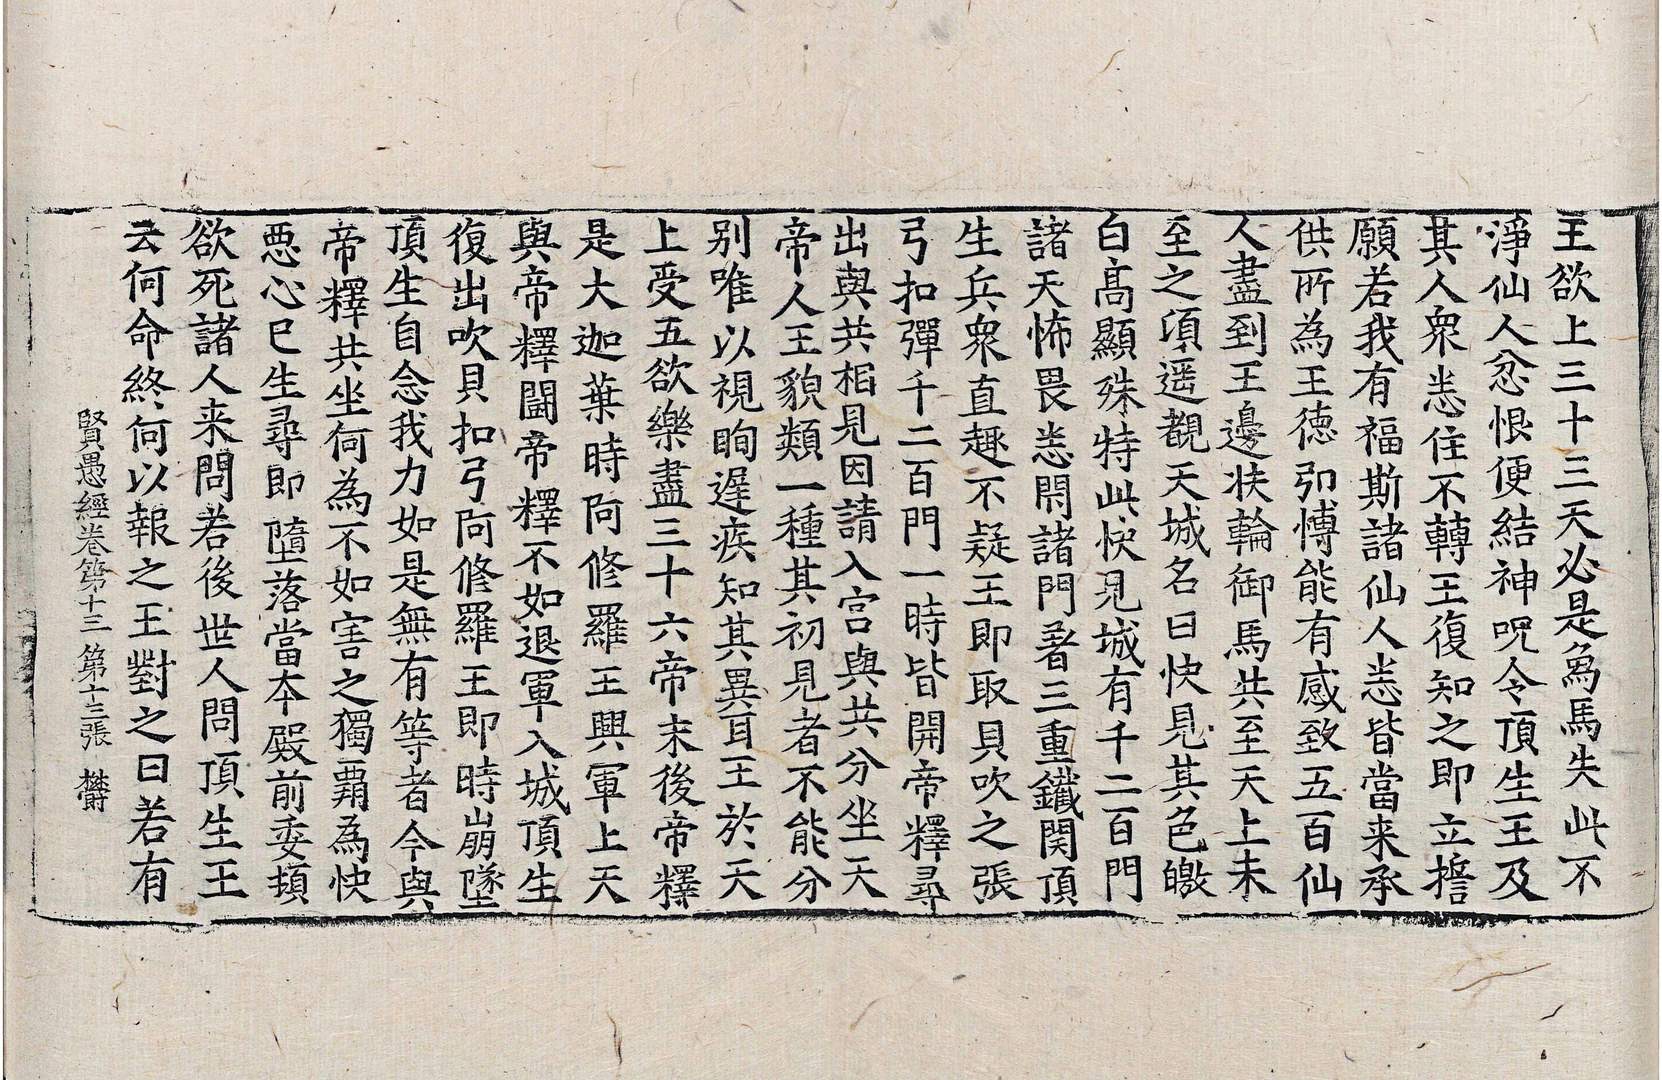 王欲上三十三天必是爲馬失此不
淨仙人忿恨便結神呪令頂生王及
其人衆悉住不轉王復知之即立擔
願若我有福斯諸仙人悉皆當来承
供所為王德卽愽能有感致五百仙
人盡到王邊扶輪御馬共至天上未
至之湏遥覩天城名曰快見其色皦
白髙顯殊特此快見城有千二百門
諸天怖畏悉閇諸門著三重鐵関頂
生兵衆直趣不疑王即取貝吹之張
弓扣彈千二百門一時皆開帝釋尋
出與共相見因請入宫與共分坐天
帝人王貌類一種其初見者不能分
别唯以視眴遅疾知其異耳王於天
上受五欲樂盡三十六帝末後帝釋
是大迦葉時阿修羅王興軍上天
與帝釋鬪帝釋不如退軍入城頂生
復出吹貝扣弓阿修羅王即時崩墜
頂生自念我力如是無有等者今與
帝釋共坐何為不如害之獨霸為快
惡心已生尋即墮落當本殿前委頓
欲死諸人来問若後世人問頂生王
云何命終何以報之王對之曰若有
賢愚經卷第十三 第十三張